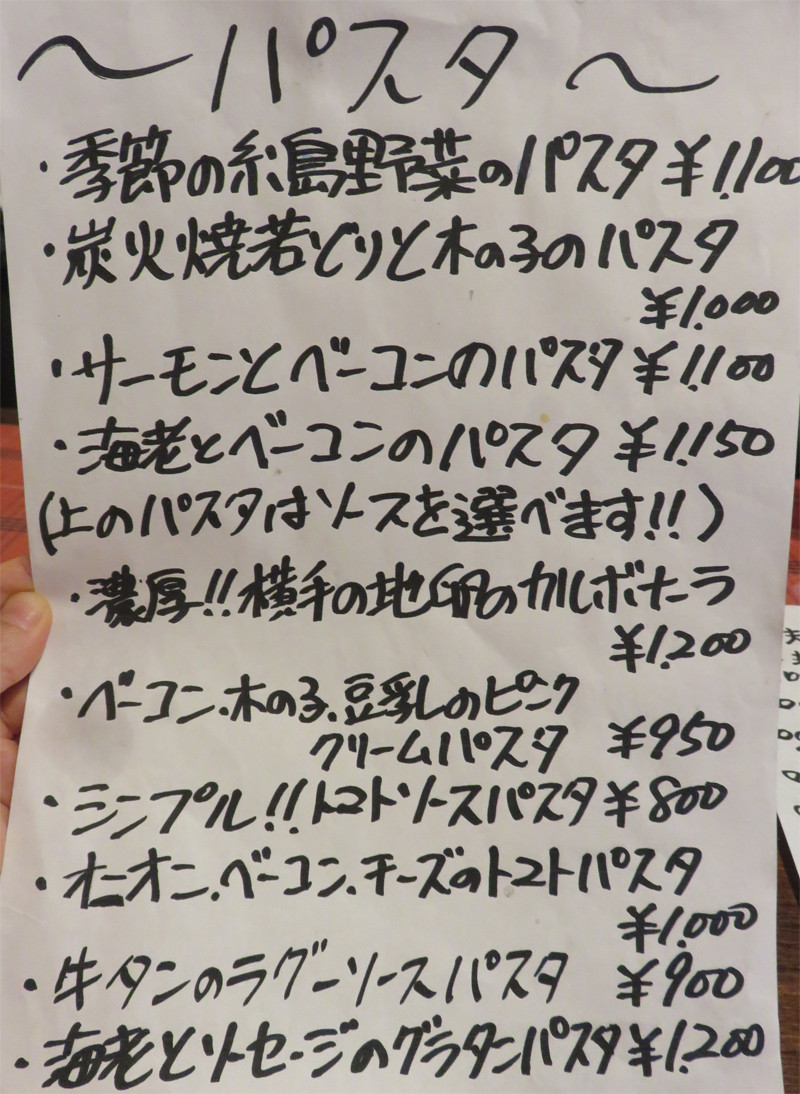 ～パスタ～
・季節の糸島野菜のパスタ ¥1,100
・炭火焼若どりと木の子のパスタ
¥1,000
・サーモンとベーコンのパスタ ¥1,100
・海老とベーコンのパスタ ¥1,150
(上のパスタはソースを選べます!!)
・濃厚!!横手の地卵のカルボナーラ
¥1,200
・ベーコン、木の子、豆乳のピンク
クリームパスタ ¥950
・シンプル!!トマトソースパスタ ¥800
・オニオニ、ベーコン、チーズのトマトパスタ
¥1,000
・牛タンのラグーソースパスタ ¥900
・海老とソーセージのグラタンパスタ ¥1,200